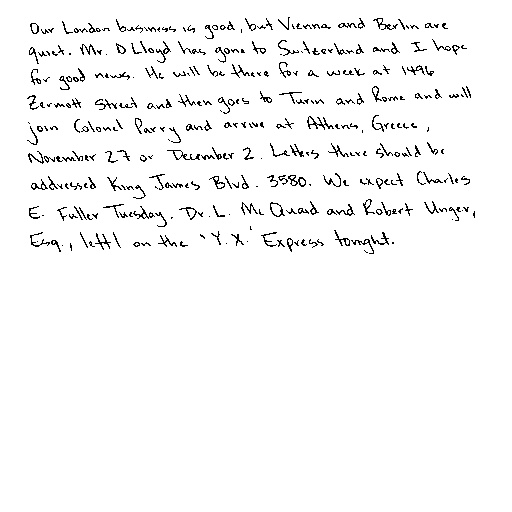 Our London business is good, but Vienna and Berlin are
quiet. Mr. D Lloyd has gone to Switzerland and I hope
for good news. He will be there for a week at 1496
Zermott Street and then goes to Turin and Rome and will
join Colonel Parry and arrive at Athens, Greece,
November 27 or December 2. Letters there should be
addressed King James Blvd. 3580. We expect Charles
E. Fuller Tuesday. Dr. L. Mc Quaid and Robert Unger,
Esq., left on the 'Y.X.' Express tonight.